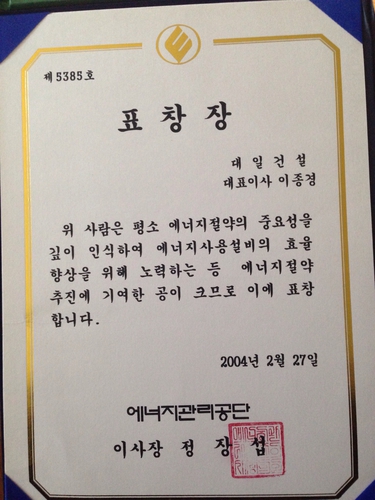 제 5385 호
표 창 장
대 일 건 설
대표이사 이종경
위 사람은 평소 에너지절약의 중요성을
깊이 인식하여 에너지사용설비의 효율
향상을 위해 노력하는 등 에너지절약
추진에 기여한 공이 크므로 이에 표창
합니다.
2004년 2월 27일
에너지관리공단
이사장 정 장 섭